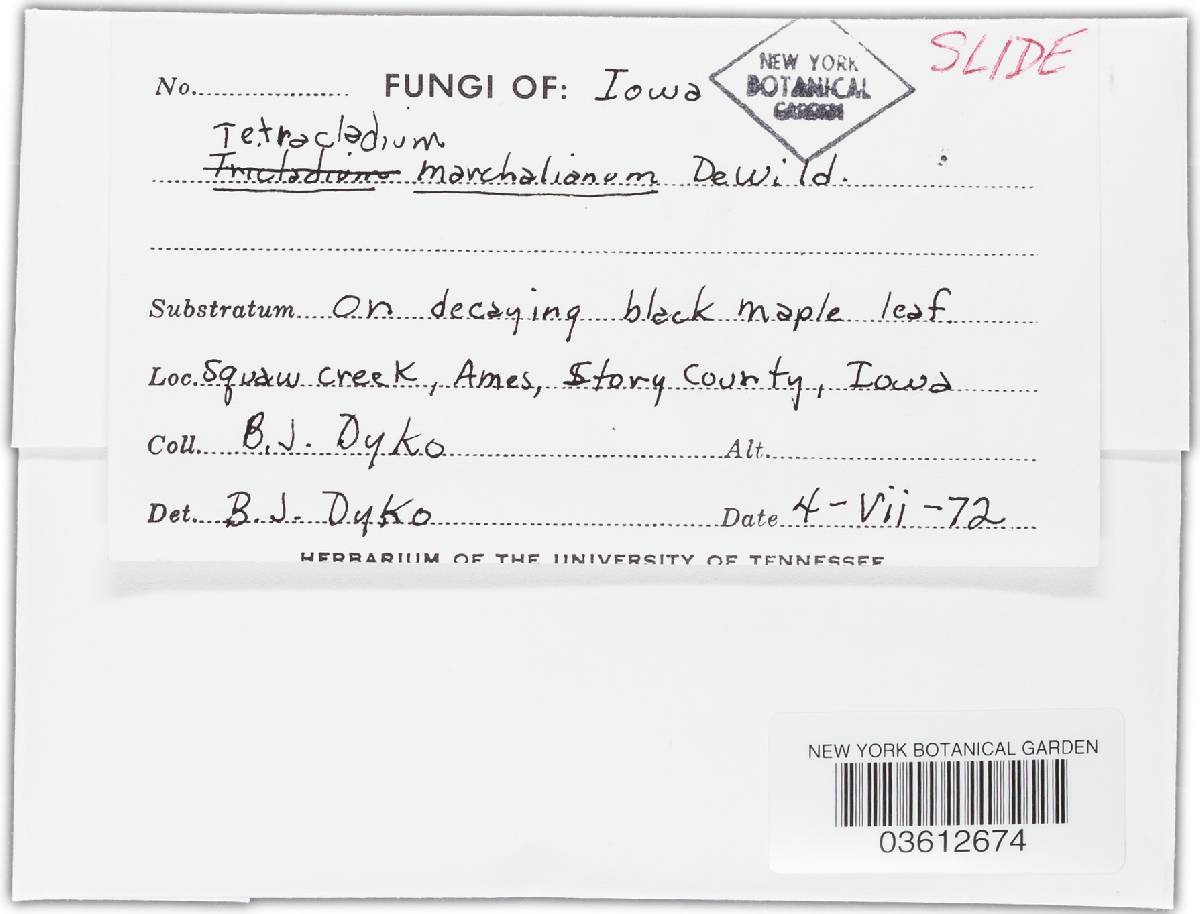 SLIDE
NEW YORK
BOTANICAL
GARDEN
No. FUNGI OF: Iowa
Tetracladium
Tricladium marchalianum DeWild.
Substratum On decaying black maple leaf
Loc. Squaw creek, Ames, Story County, Iowa
Coll. B.J. Dyko Alt.
Det. B.J. Dyko Date 4-Vii-72
HERBARIUM OF THE UNIVERSITY OF TENNESSEE
NEW YORK BOTANICAL GARDEN
03612674